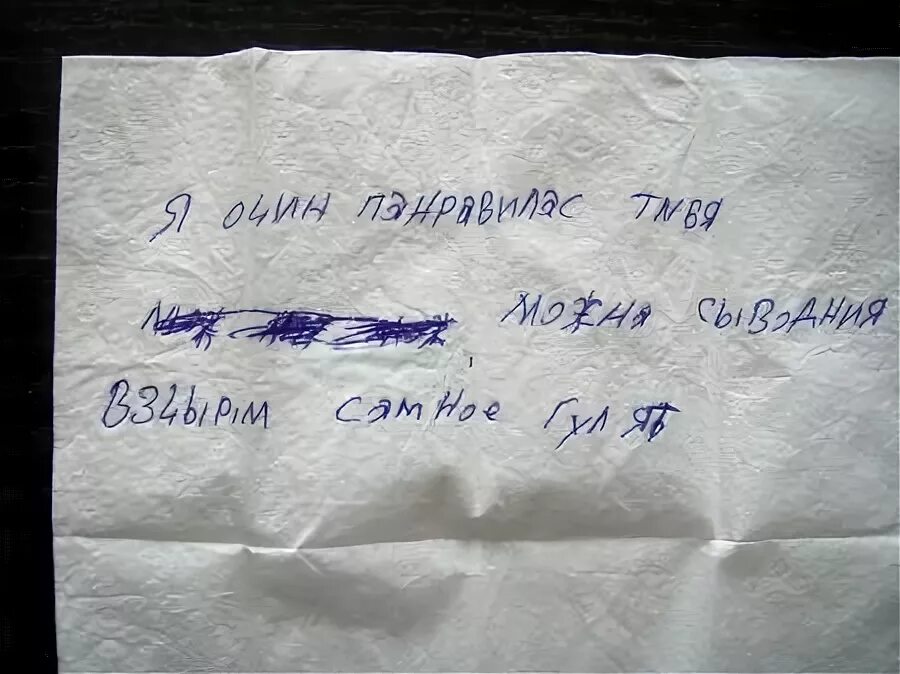 Я очин панравилас тмбя
можна сыводния
взчырім самное гулят